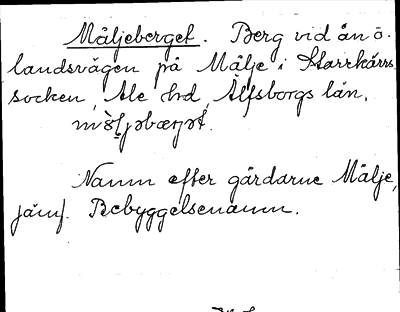 Mäljeberget. Berg vid ån o.
landsvägen på Mälje i Starrkärrs
socken, Ale hrd, Älfsborgs län.
Namn efter gårdarne Mälje,
jämf. Bebyggelsenamn.